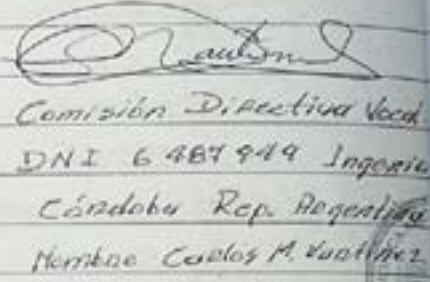 Comisión Directiva Vocal
DNI 6 487 949
Córdoba Rep. Argentina
Nombre Carlos M.